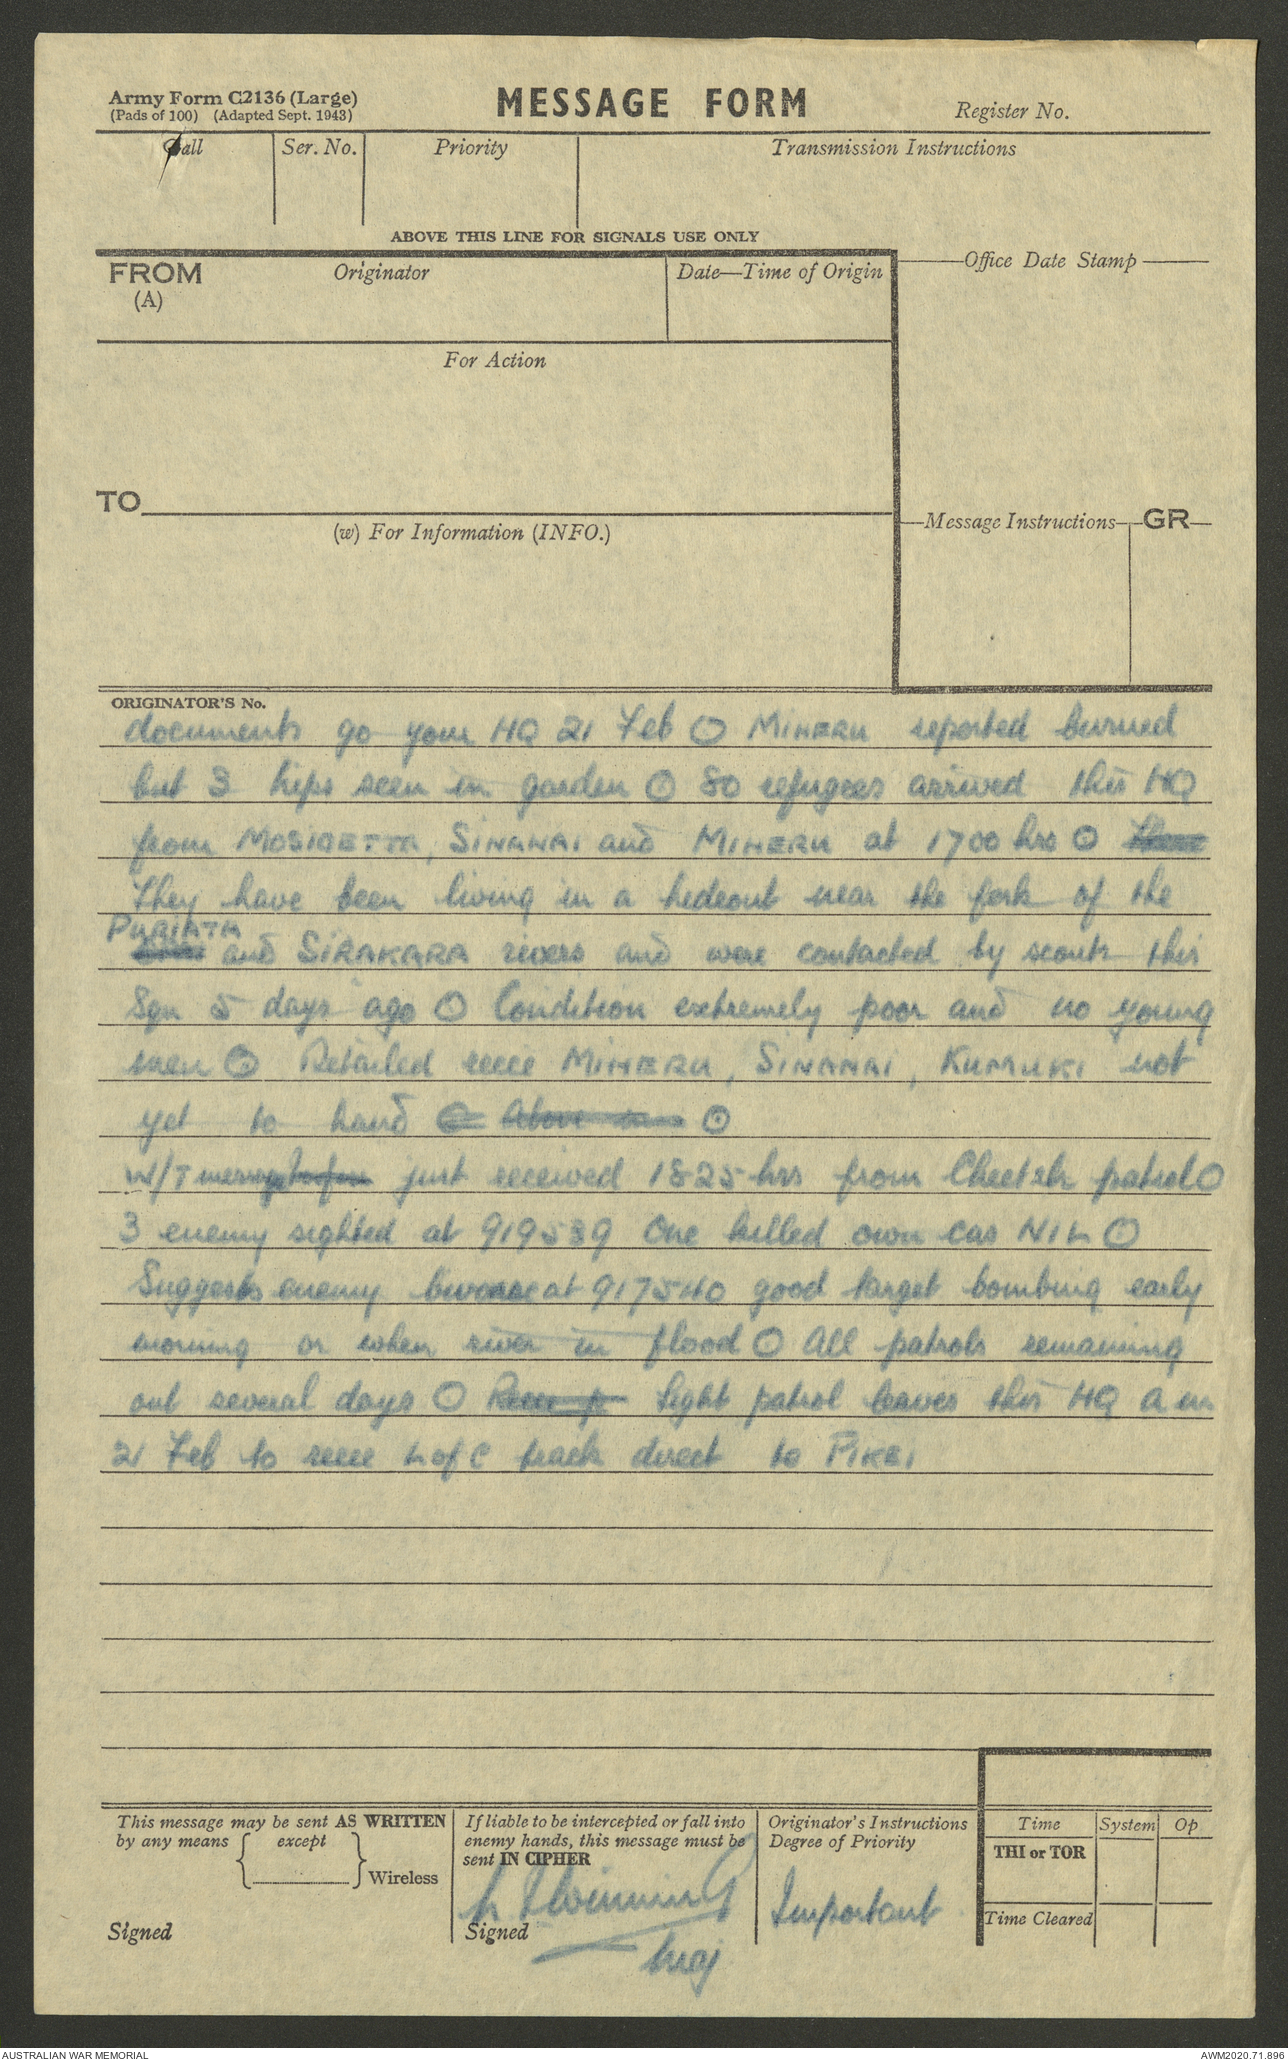 Army Form C2136 (Large)
(Pads of 100) (Adapted Sept. 1943)
MESSAGE FORM
Register No.
Call
Ser. No.
Priority
Transmission Instructions
ABOVE THIS LINE FOR SIGNALS USE ONLY
FROM
(A)
Originator
Date—Time of Origin
Office Date Stamp
For Action
TO
(w) For Information (INFO.)
Message Instructions
GR
ORIGINATOR'S No.
documents go your HQ 21 Feb ⊙ MIHERU reported burned
but 3 nips seen in garden ⊙ 80 refugees arrived this HQ
from MOSIGETTA, SINANAI and MIHERU at 1700 hrs ⊙
They have been living in a hideout near the fork of the
PURIATA
and SIRAKARA rivers and were contacted by scouts this
Sqn 5 days ago ⊙ Condition extremely poor and no young
men ⊙ Detailed recce MIHERU, SINANAI, KUMUKI not
yet to hand ⊙
W/T message just received 1825 hrs from Cheetah patrol ⊙
3 enemy sighted at 919539 One killed own cas NIL ⊙
Suggests enemy at 917540 good target bombing early
morning or when river in flood ⊙ All patrols remaining
out several days ⊙ light patrol leaves this HQ a m
21 Feb to recce L of C track direct to PIKEI
This message may be sent AS WRITTEN
by any means { except }
Wireless
Signed
If liable to be intercepted or fall into
enemy hands, this message must be
sent IN CIPHER
Signed
Maj
Originator's Instructions
Degree of Priority
Important
Time
System
Op
THI or TOR
Time Cleared
AUSTRALIAN WAR MEMORIAL
AWM2020.71.896